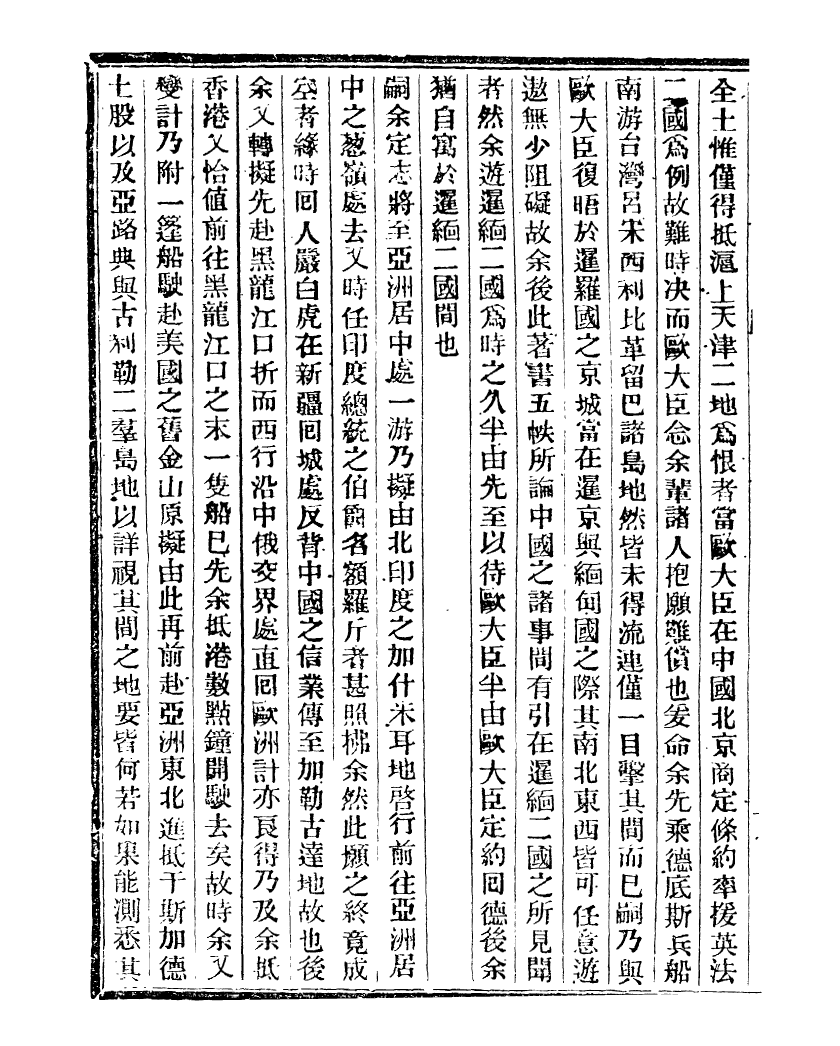 全土惟僅得抵滬上天津二地爲恨者當歐大臣在中國北京商定條約率援英法
二國爲例故難時决而歐大臣念余輩諸人抱願難償也爰命余先乘德底斯兵船
南游台灣呂宋西利比革留巴諸島地然皆未得流連僅一目擊其間而已嗣乃與
歐大臣復晤於暹羅國之京城當在暹京與緬甸國之際其南北東西皆可任意遊
遨無少阻礙故余後此著書五帙所論中國之諸事間有引在暹緬二國之所見聞
者然余遊暹緬二國爲時之久半由先至以待歐大臣半由歐大臣定約回德後余
猶自寓於暹緬二國間也
嗣余定志將至亞洲居中處一游乃擬由北印度之加什米耳地啓行前往亞洲居
中之葱嶺處去又時任印度總統之伯爵名額羅斤者甚照拂余然此願之終竟成
空者緣時回人嚴白虎在新疆回城處反背中國之信業傳至加勒古達地故也後
余又轉擬先赴黑龍江口折而西行沿中俄交界處直回歐洲計亦良得乃及余抵
香港又恰值前往黑龍江口之末一隻船已先余抵港數點鐘開駛去矣故時余又
變計乃附一篷船駛赴美國之舊金山原擬由此再前赴亞洲東北進抵干斯加德
土股以及亞路典與古利勒二羣島地以詳視其間之地要皆何若如果能測悉其